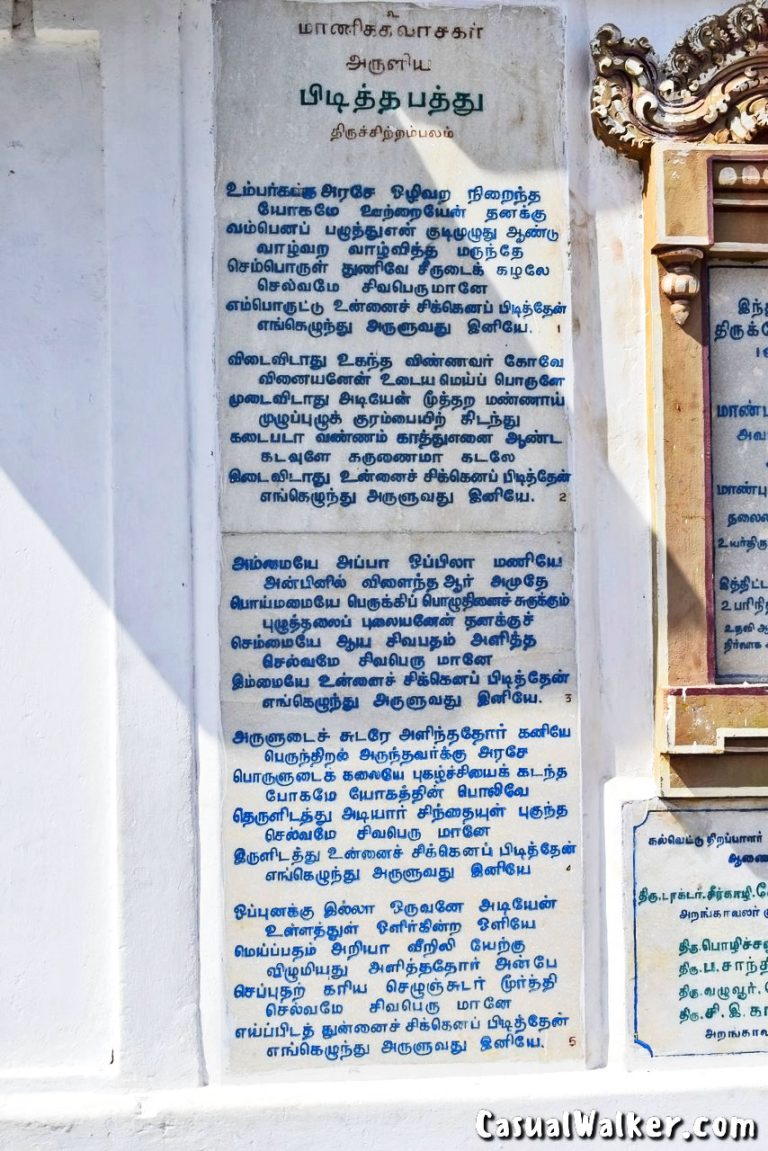 உ
மாணிக்கவாசகர்
அருளிய
பிடித்த பத்து
திருச்சிற்றம்பலம்
உம்பர்கட்கு அரசே ஒழிவற நிறைந்த
யோகமே ஊற்றையேன் தனக்கு
வம்பெனப் பழுத்துஎன் குடிமுழுது ஆண்டு
வாழ்வற வாழ்வித்த மருந்தே
செம்பொருள் துணிவே சீருடைக் கழலே
செல்வமே சிவபெருமானே
எம்பொருட்டு உன்னைச் சிக்கெனப் பிடித்தேன்
எங்கெழுந்து அருளுவது இனியே. 1
விடைவிடாது உகந்த விண்ணவர் கோவே
வினையனேன் உடைய மெய்ப் பொருளே
முடைவிடாது அடியேன் மூத்தற மண்ணாய்
முழுப்புழுக் குரம்பையிற் கிடந்து
கடைபடா வண்ணம் காத்துஎனை ஆண்ட
கடவுளே கருணைமா கடலே
இடைவிடாது உன்னைச் சிக்கெனப் பிடித்தேன்
எங்கெழுந்து அருளுவது இனியே. 2
அம்மையே அப்பா ஒப்பிலா மணியே
அன்பினில் விளைந்த ஆர் அமுதே
பொய்மமையே பெருக்கிப் பொழுதினைச் சுருக்கும்
புழுத்தலைப் புலையனேன் தனக்குச்
செம்மையே ஆய சிவபதம் அளித்த
செல்வமே சிவபெரு மானே
இம்மையே உன்னைச் சிக்கெனப் பிடித்தேன்
எங்கெழுந்து அருளுவது இனியே. 3
அருளுடைச் சுடரே அளிந்ததோர் கனியே
பெருந்திறல் அருந்தவர்க்கு அரசே
பொருளுடைக் கலையே புகழ்ச்சியைக் கடந்த
போகமே யோகத்தின் பொலிவே
தெருளிடத்து அடியார் சிந்தையுள் புகுந்த
செல்வமே சிவபெரு மானே
இருளிடத்து உன்னைச் சிக்கெனப் பிடித்தேன்
எங்கெழுந்து அருளுவது இனியே 4
ஒப்புனக்கு இல்லா ஒருவனே அடியேன்
உள்ளத்துள் ஒளிர்கின்ற ஒளியே
மெய்ப்பதம் அறியா வீறிலி யேற்கு
விழுமியது அளித்ததோர் அன்பே
செப்புதற் கரிய செழுஞ்சுடர் மூர்த்தி
செல்வமே சிவபெரு மானே
எய்ப்பிடத் துன்னைச் சிக்கெனப் பிடித்தேன்
எங்கெழுந்து அருளுவது இனியே. 5
கல்வெட்டு திறப்பாளர்
திரு.டாக்டர்.சீர்காழி.
அறங்காவலர்
திரு.
திரு.ப.சாந்தி
திரு.வழுவூர்.
திரு.சி.இ.கா
அறங்காவ
CasualWalker.com